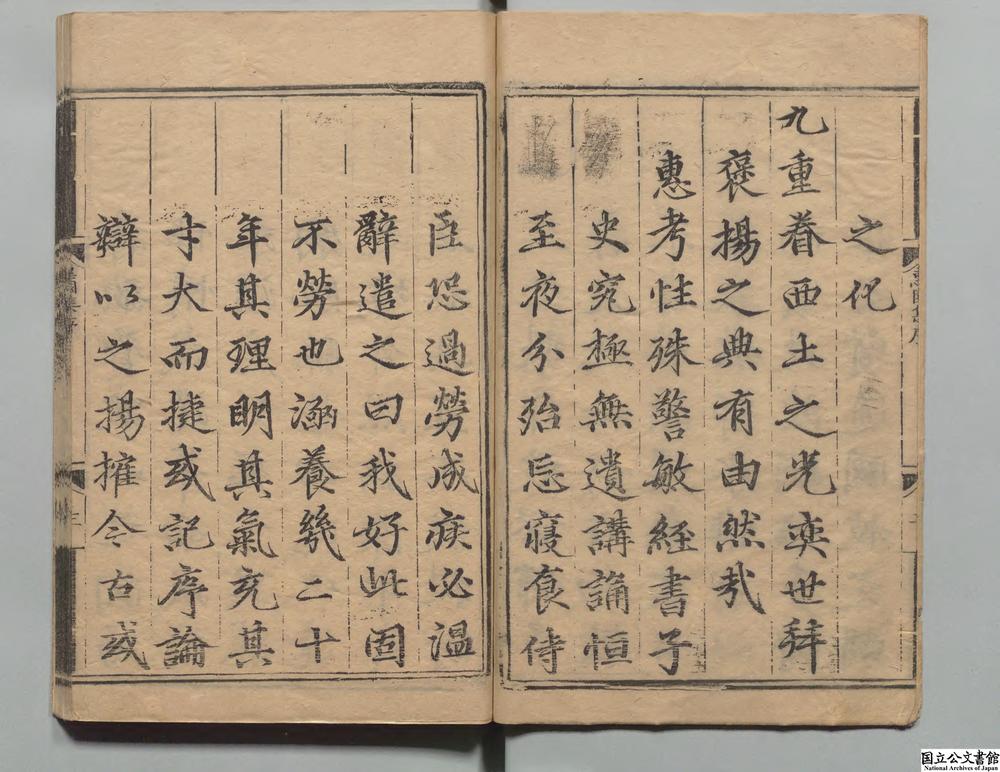 之化
九重眷西土之光奕世拜
褒揚之典有由然哉
惠考性殊警敏經書子
史究極無遺講誦恒
至夜分殆忘寢食侍
臣恐過勞成疾必溫
辭遣之曰我好此固
不勞也涵養幾二十
年其理明其氣充其
才大而捷或記序論
辯以之揚搉今古或
三
国立公文書館
National Archives of Japan